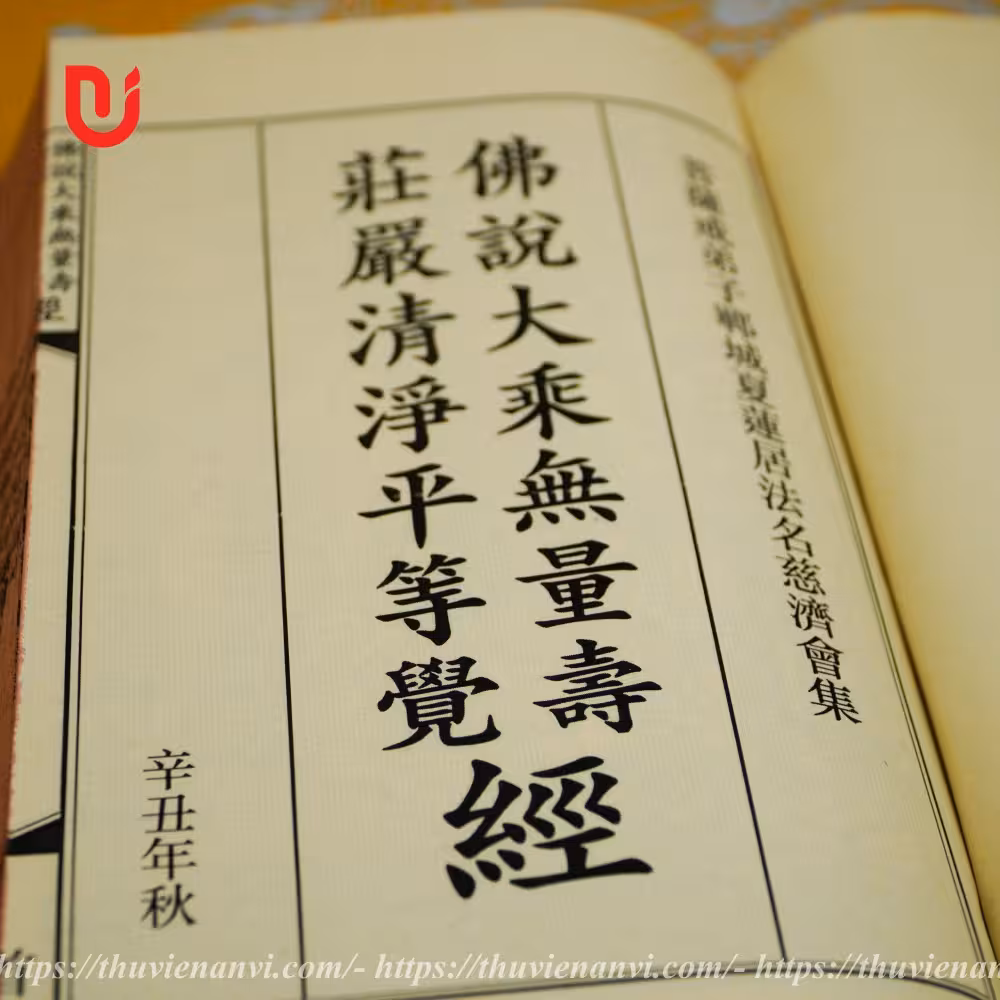 菩薩戒弟子鄆城夏蓮居法名慈濟會集
佛說大乘無量壽
莊嚴清淨平等覺
經
辛丑年秋
佛說大乘無量壽經
https://thuvienanvi.com/- https://thuvienanvi.com/- https://thuvienan